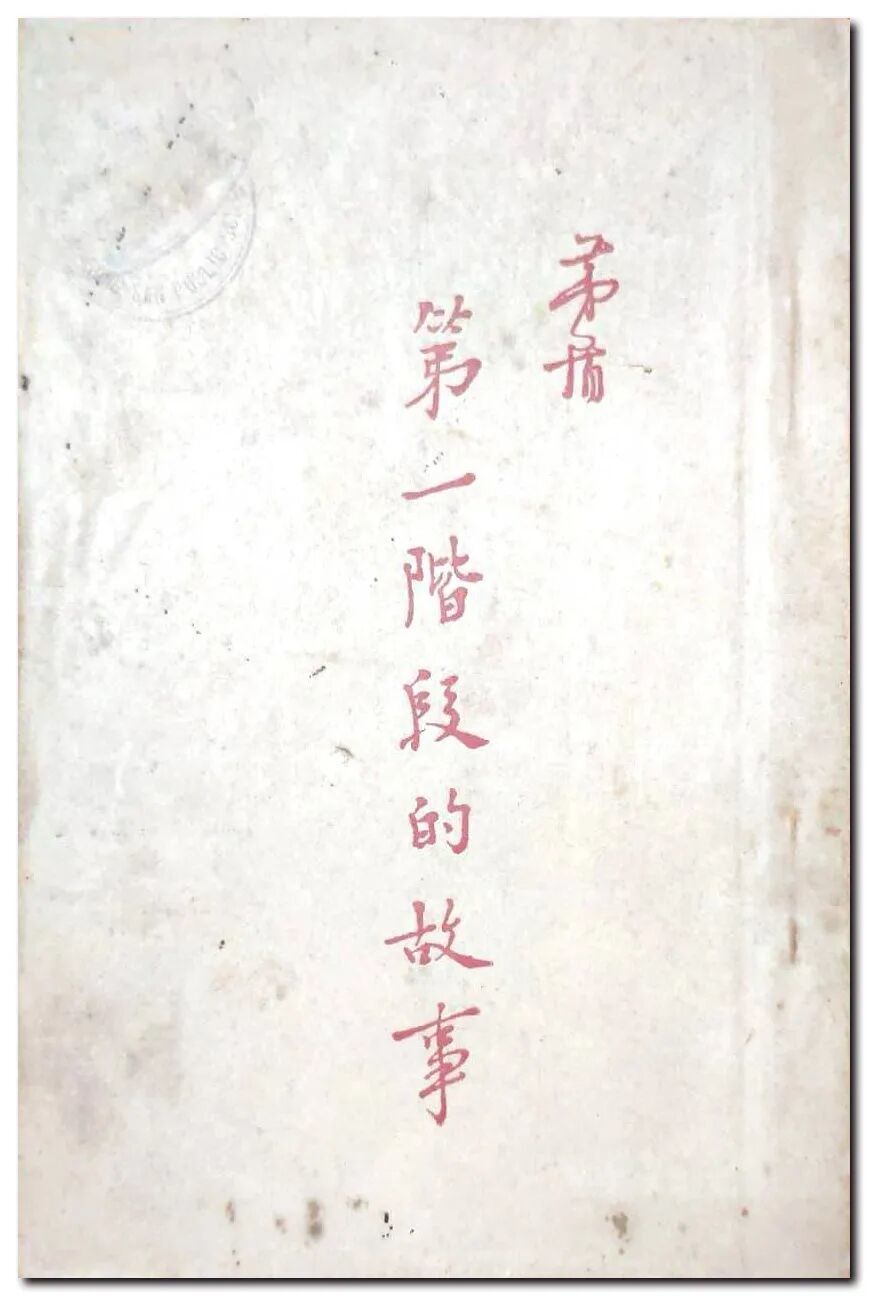 茅盾
第一階段的故事
PUBLIC